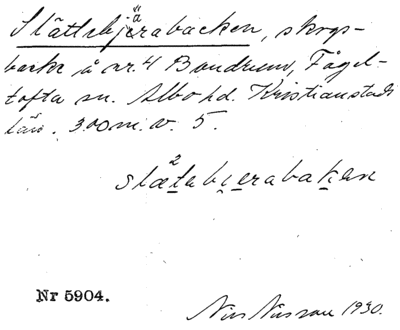 Slättebjärabacken, skogs-
backe å nr. 4 Bondrum, Fågel-
tofta sn. Albo hd. Kristianstads
län. 300 m. v. 5.
slætabjerabakan
Nr 5904.
Nils Nilsson 1930.